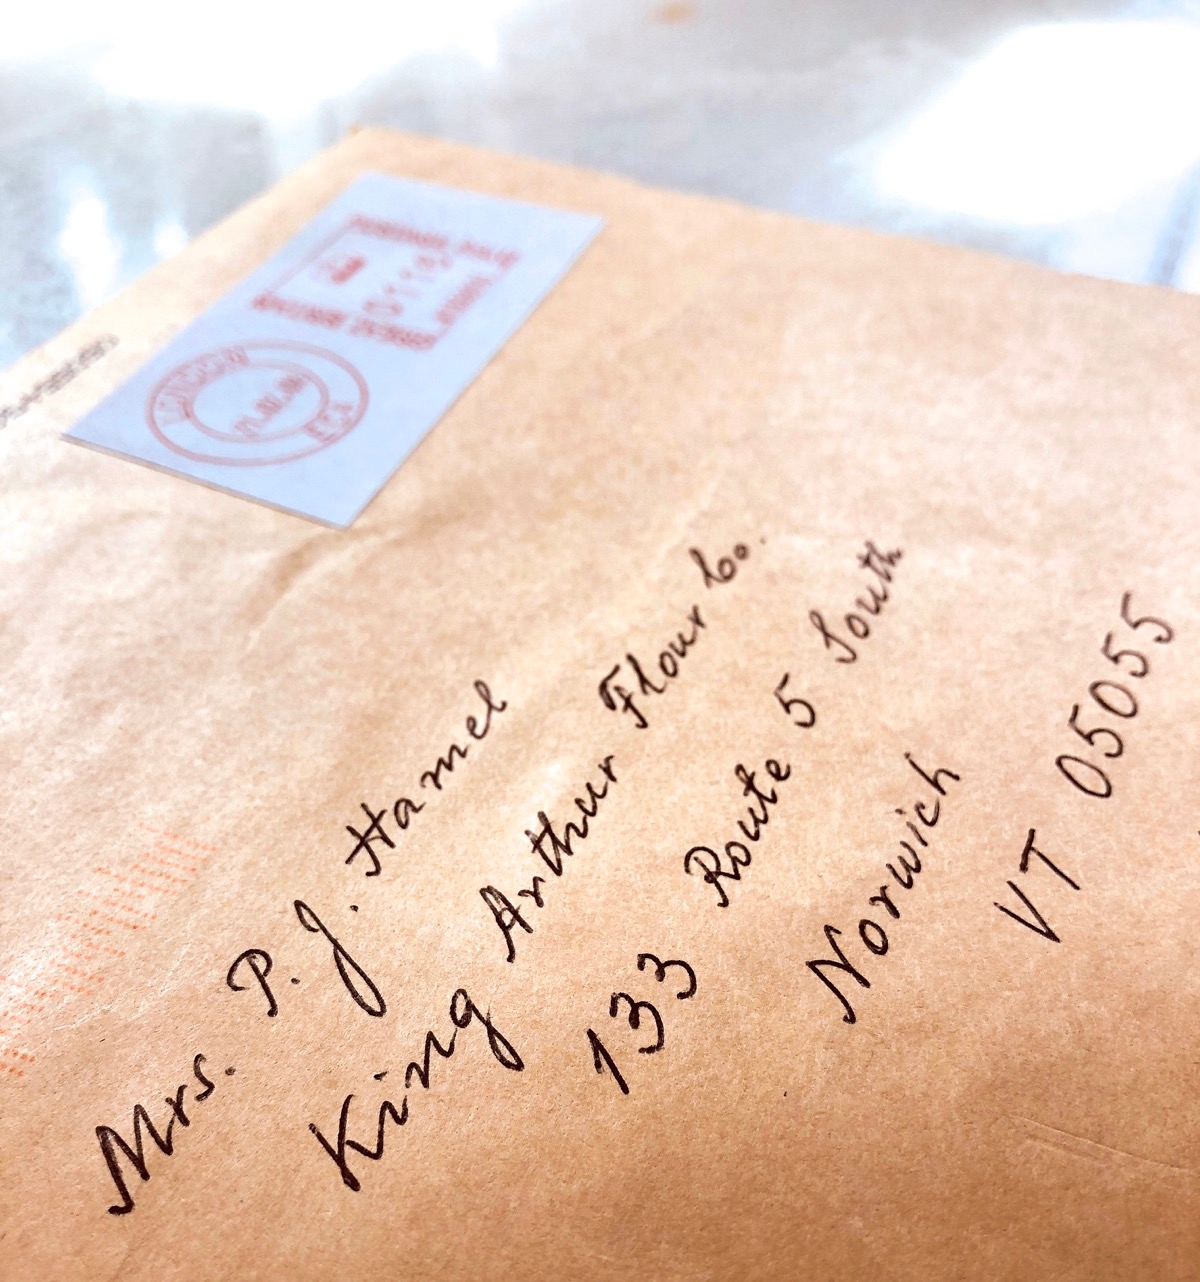 LONDON
EC1
Mrs. P. J. Hamel
King Arthur Flour Co.
133 Route 5 South
Norwich
VT 05055